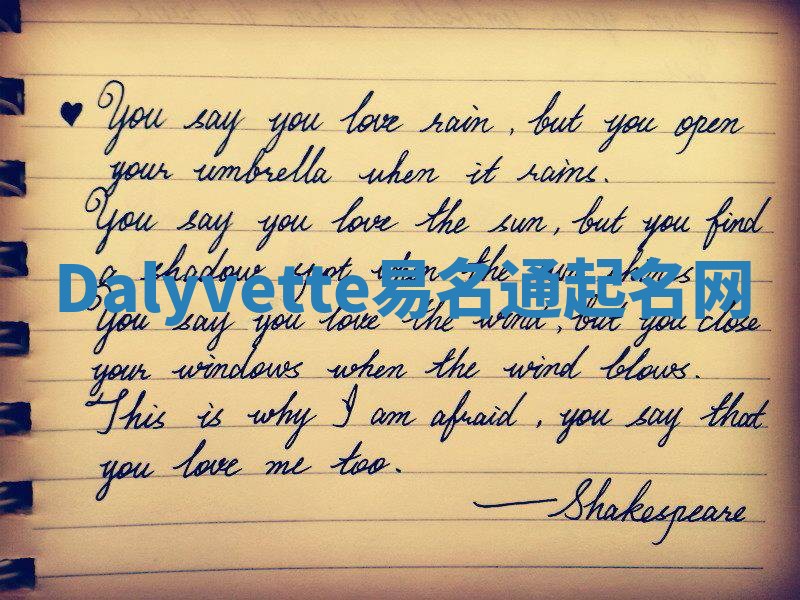 ♥ You say you love rain, but you open
your umbrella when it rains.
You say you love the sun, but you find
a shadow spot when the sun shines
Dalyvette易名通起名网
You say you love the wind, but you close
your windows when the wind blows.
This is why I am afraid, you say that
you love me too.
—Shakespeare